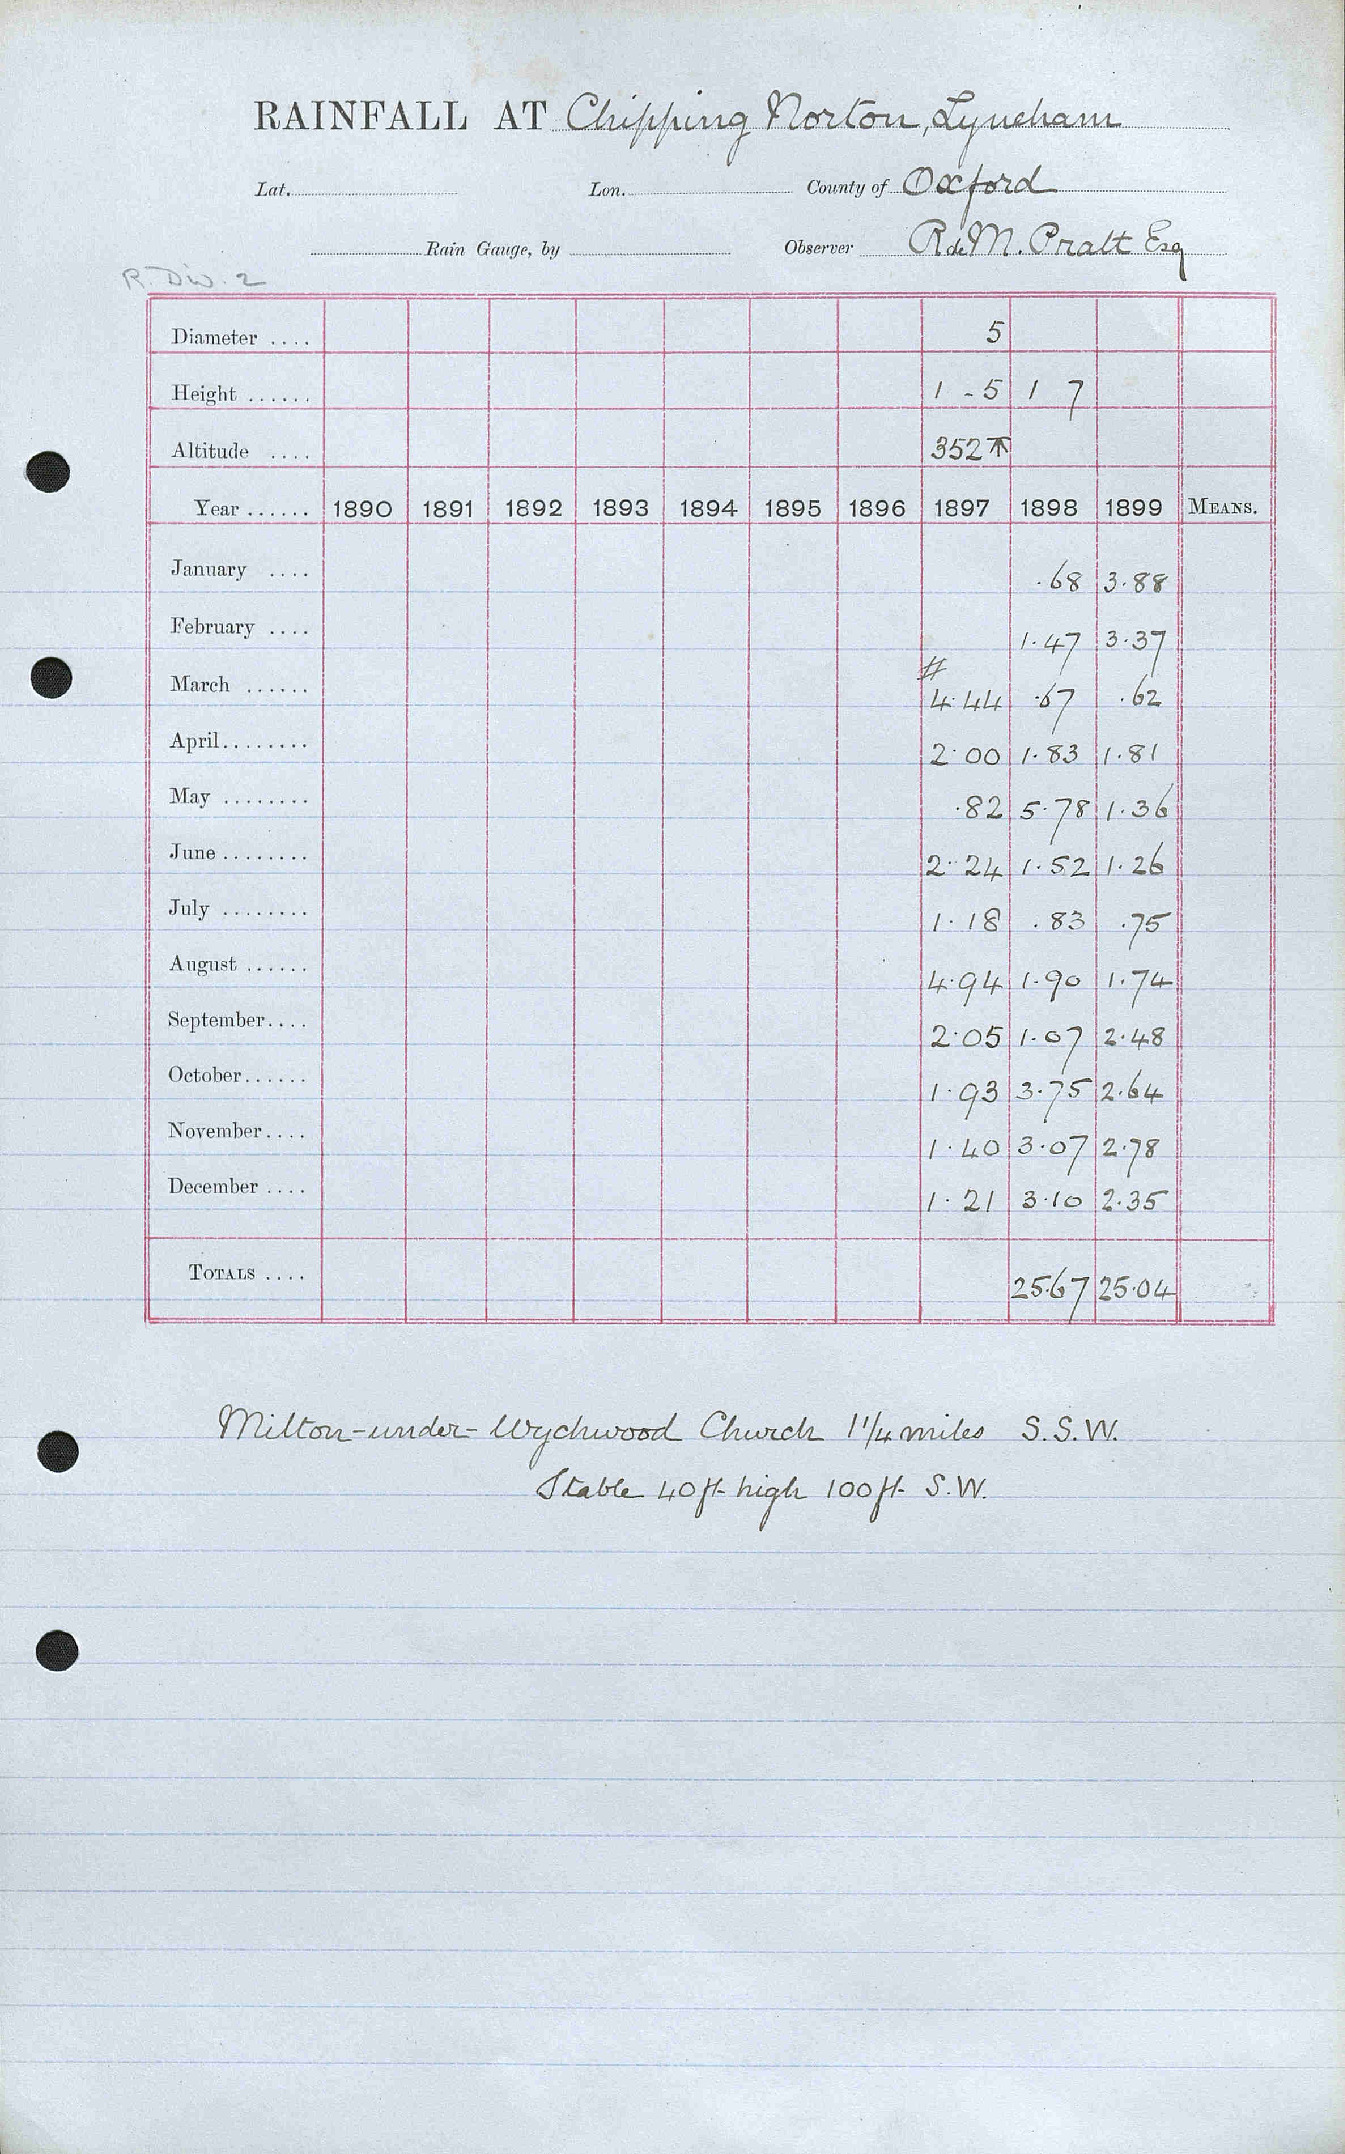 RAINFALL AT Chipping Norton, Lyneham
Lat. Lon. County of Oxford
Rain Gauge, by Observer R de M. Pratt Esq
R. Div. 2
Diameter .... 5
Height ...... 1 - 5 1 7
Altitude .... 352
Year ...... 1890 1891 1892 1893 1894 1895 1896 1897 1898 1899 MEANS.
January .... .68 3.88
February .... 1.47 3.37
#
March ...... 4.44 .67 .62
April ........ 2.00 1.83 1.81
May ........ .82 5.78 1.36
June ........ 2.24 1.52 1.26
July ........ 1.18 .83 .75
August ...... 4.94 1.90 1.74
September .... 2.05 1.07 2.48
October ...... 1.93 3.75 2.64
November .... 1.40 3.07 2.78
December .... 1.21 3.10 2.35
TOTALS .... 25.67 25.04
Milton-under-Wychwood Church 1 1/4 miles S.S.W.
Stable 40 ft high 100 ft S.W.